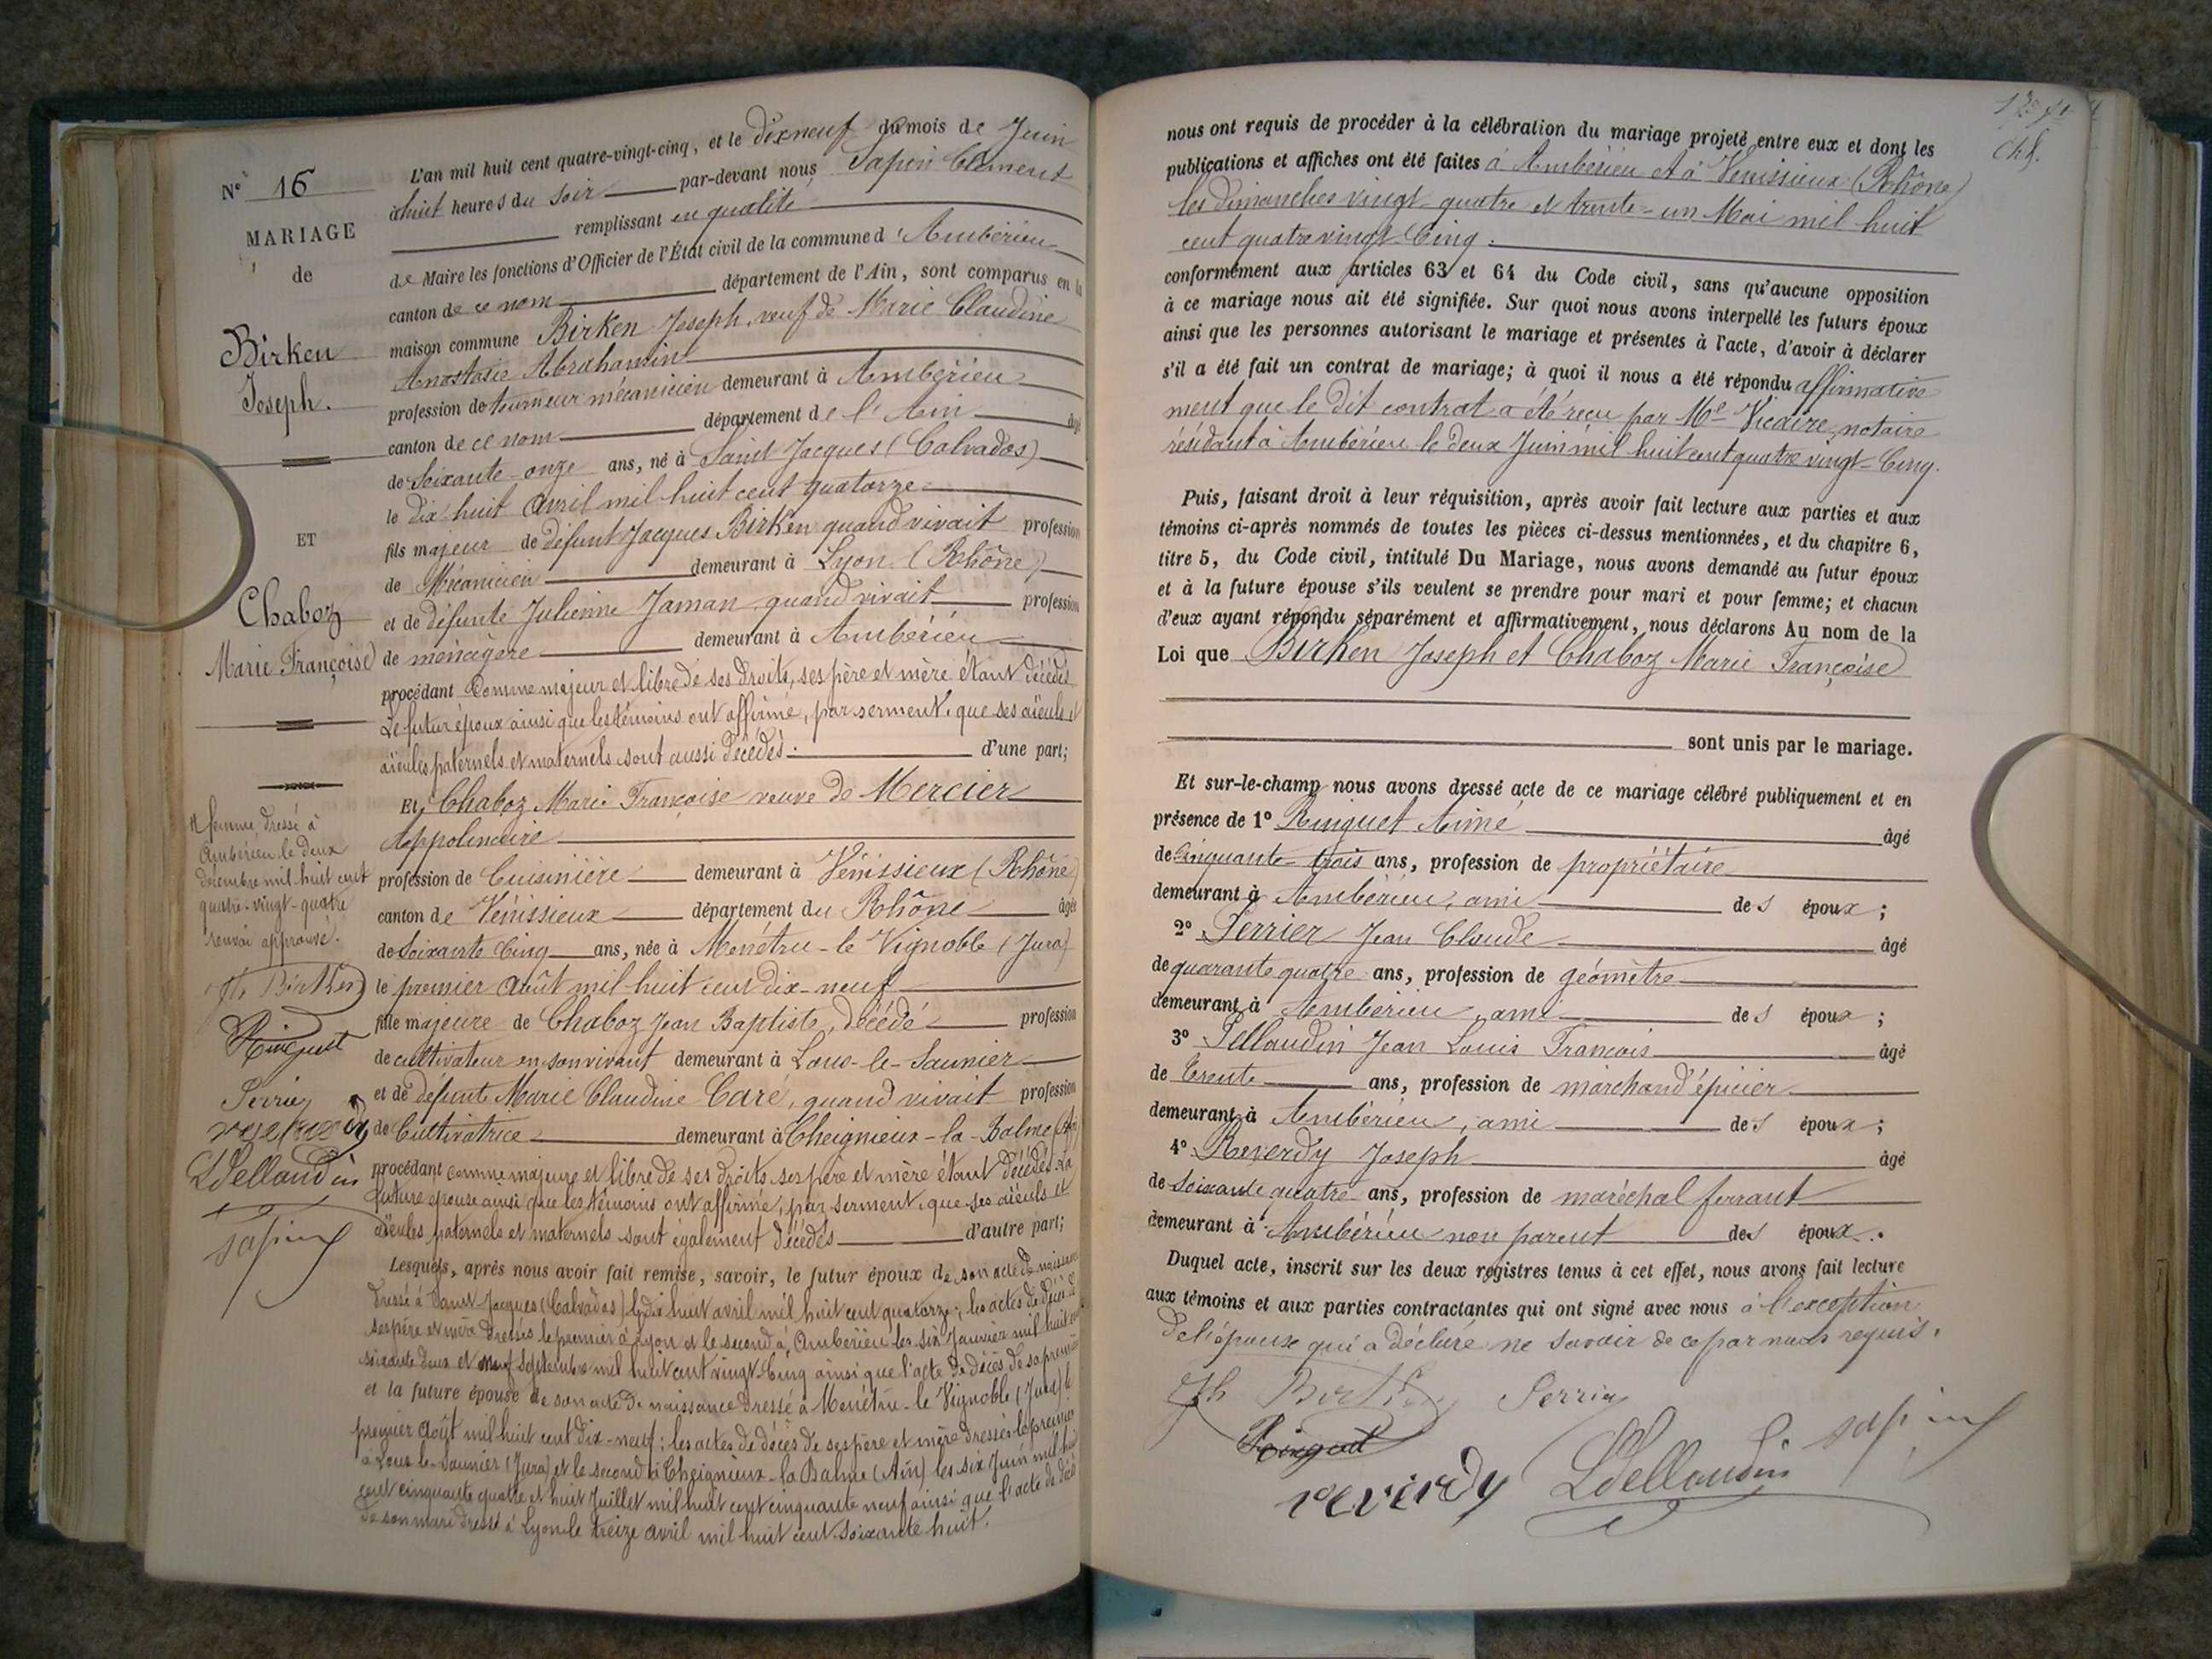 N° 16
MARIAGE
de
Birken
Joseph.
ET
Chaboz
Marie Françoise
femme, dressé à
Ambérieu le deux
décembre mil huit cent
quatre-vingt-quatre
renvoi approuvé.
Ringuet
Perrier
reverdy
LPellaudin
sapin
L'an mil huit cent quatre-vingt-cinq, et le dix neuf du mois de Juin
à huit heures du soir par-devant nous Sapin Clément
remplissant en qualité
de Maire les fonctions d'Officier de l'État civil de la commune d'Ambérieu
canton de ce nom département de l'Ain, sont comparus en la
maison commune Birken Joseph, veuf de Marie Claudine
Anastasie Abrahamin
profession de tourneur mécanicien demeurant à Ambérieu
canton de ce nom département de l'Ain âgé
de Soixante-onze ans, né à Saint Jacques (Calvados)
le dix huit avril mil huit cent quatorze
fils majeur de défunt Jacques Birken quand vivait profession
de Mécanicien demeurant à Lyon (Rhône)
et de défunte Julienne Jaman quand vivait profession
de ménagère demeurant à Ambérieu
procédant comme majeur et libre de ses droits, ses père et mère étant décédés
Le futur époux ainsi que les témoins ont affirmé, par serment, que ses aïeuls et
aïeules paternels et maternels sont aussi décédés. d'une part;
Et, Chaboz Marie Françoise veuve de Mercier
Appolinaire
profession de Cuisinière demeurant à Vénissieux (Rhône)
canton de Vénissieux département du Rhône âgée
de Soixante Cinq ans, née à Menétru-le Vignoble (Jura)
le premier Août mil huit cent dix-neuf
fille majeure de Chaboz Jean Baptiste, décédé profession
de cultivateur en son vivant demeurant à Lons-le-Saunier
et de défunte Marie Claudine Caré, quand vivait profession
de Cultivatrice demeurant à Cheignieux-la-Balme (Ain)
procédant comme majeure et libre de ses droits ses père et mère étant décédés La
future épouse ainsi que les témoins ont affirmé, par serment, que ses aïeuls et
aïeules paternels et maternels sont également décédés d'autre part;
Lesquels, après nous avoir fait remise, savoir, le futur époux de son acte de naissance
dressé à Saint Jacques (Calvados) le dix huit avril mil huit cent quatorze; les actes de décès de
ses père et mère dressés le premier à Lyon et le second à Ambérieu les six Janvier mil huit cent
soixante deux et neuf Septembre mil huit cent vingt-Cinq ainsi que l'acte de décès de sa première
et la future épouse de son acte de naissance dressé à Menétru-le Vignoble (Jura) le
premier Août mil huit cent dix-neuf; les actes de décès de ses père et mère dressés le premier
à Lons-le-Saunier (Jura) et le second à Cheignieux-la Balme (Ain) les six Juin mil huit
cent cinquante quatre et huit Juillet mil huit cent cinquante neuf ainsi que l'acte de décès
de son mari dressé à Lyon le treize avril mil huit cent soixante huit.
nous ont requis de procéder à la célébration du mariage projeté entre eux et dont les
publications et affiches ont été faites à Ambérieu et à Vénissieux (Rhône)
les dimanches vingt-quatre et trente-un Mai mil huit
cent quatre vingt-Cinq.
conformément aux articles 63 et 64 du Code civil, sans qu'aucune opposition
à ce mariage nous ait été signifiée. Sur quoi nous avons interpellé les futurs époux
ainsi que les personnes autorisant le mariage et présentes à l'acte, d'avoir à déclarer
s'il a été fait un contrat de mariage; à quoi il nous a été répondu affirmative
ment que le dit contrat a été reçu par Me Vicaire, notaire
résidant à Ambérieu le deux Juin mil huit cent quatre vingt-Cinq.
Puis, faisant droit à leur réquisition, après avoir fait lecture aux parties et aux
témoins ci-après nommés de toutes les pièces ci-dessus mentionnées, et du chapitre 6,
titre 5, du Code civil, intitulé Du Mariage, nous avons demandé au futur époux
et à la future épouse s'ils veulent se prendre pour mari et pour femme; et chacun
d'eux ayant répondu séparément et affirmativement, nous déclarons Au nom de la
Loi que Birken Joseph et Chaboz Marie Françoise
sont unis par le mariage.
Et sur-le-champ nous avons dressé acte de ce mariage célébré publiquement et en
présence de 1° Ringuet Aimé âgé
de Cinquante-trois ans, profession de propriétaire
demeurant à Ambérieu, ami des époux;
2° Perrier Jean Claude âgé
de quarante quatre ans, profession de géomètre
demeurant à Ambérieu, ami des époux;
3° Pellaudin Jean Louis François âgé
de Trente ans, profession de marchand épicier
demeurant à Ambérieu, ami des époux;
4° Reverdy Joseph âgé
de Soixante quatre ans, profession de maréchal ferrant
demeurant à Ambérieu non parent des époux.
Duquel acte, inscrit sur les deux registres tenus à cet effet, nous avons fait lecture
aux témoins et aux parties contractantes qui ont signé avec nous à l'exception
de l'épouse qui a déclaré ne savoir de ce par nous requis.
Perrier
Ringuet
reverdy
LPellaudin
sapin